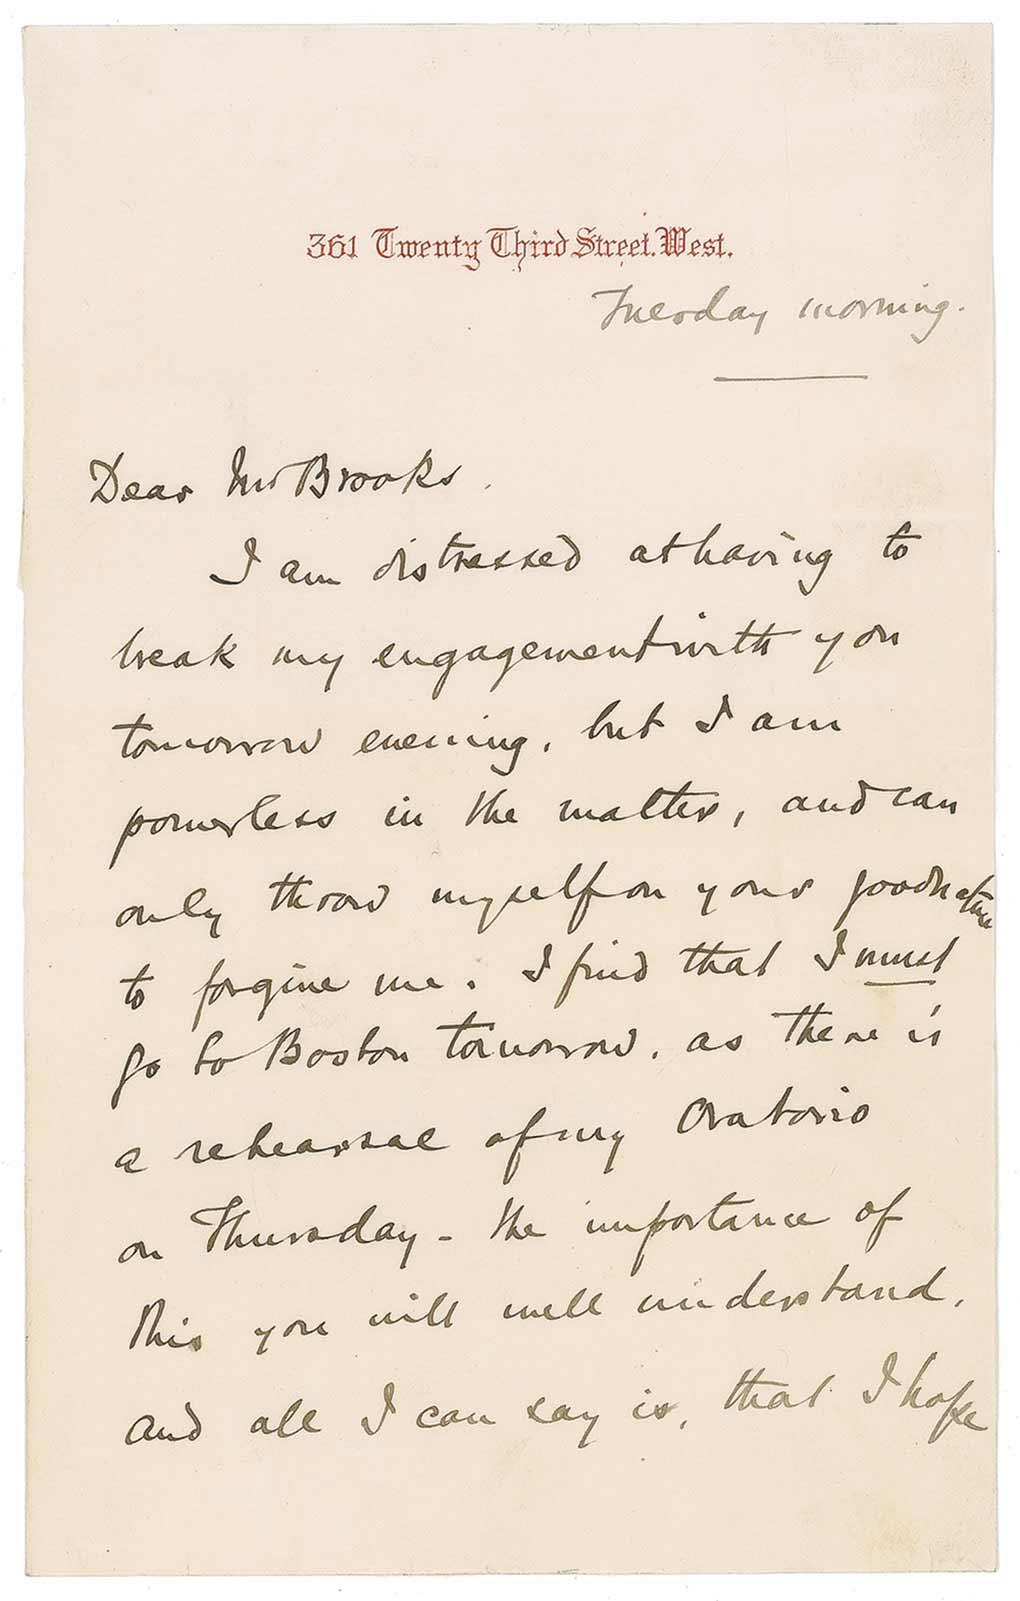 361 Twenty Third Street. West.
Tuesday morning.
Dear Mr Brooks.
I am distressed at having to
break my engagement with you
tomorrow evening, but I am
powerless in the matter, and can
only throw myself on your good nature
to forgive me. I find that I must
go to Boston tomorrow, as there is
a rehearsal of my Oratorio
on Thursday - the importance of
this you will well understand,
and all I can say is, that I hope